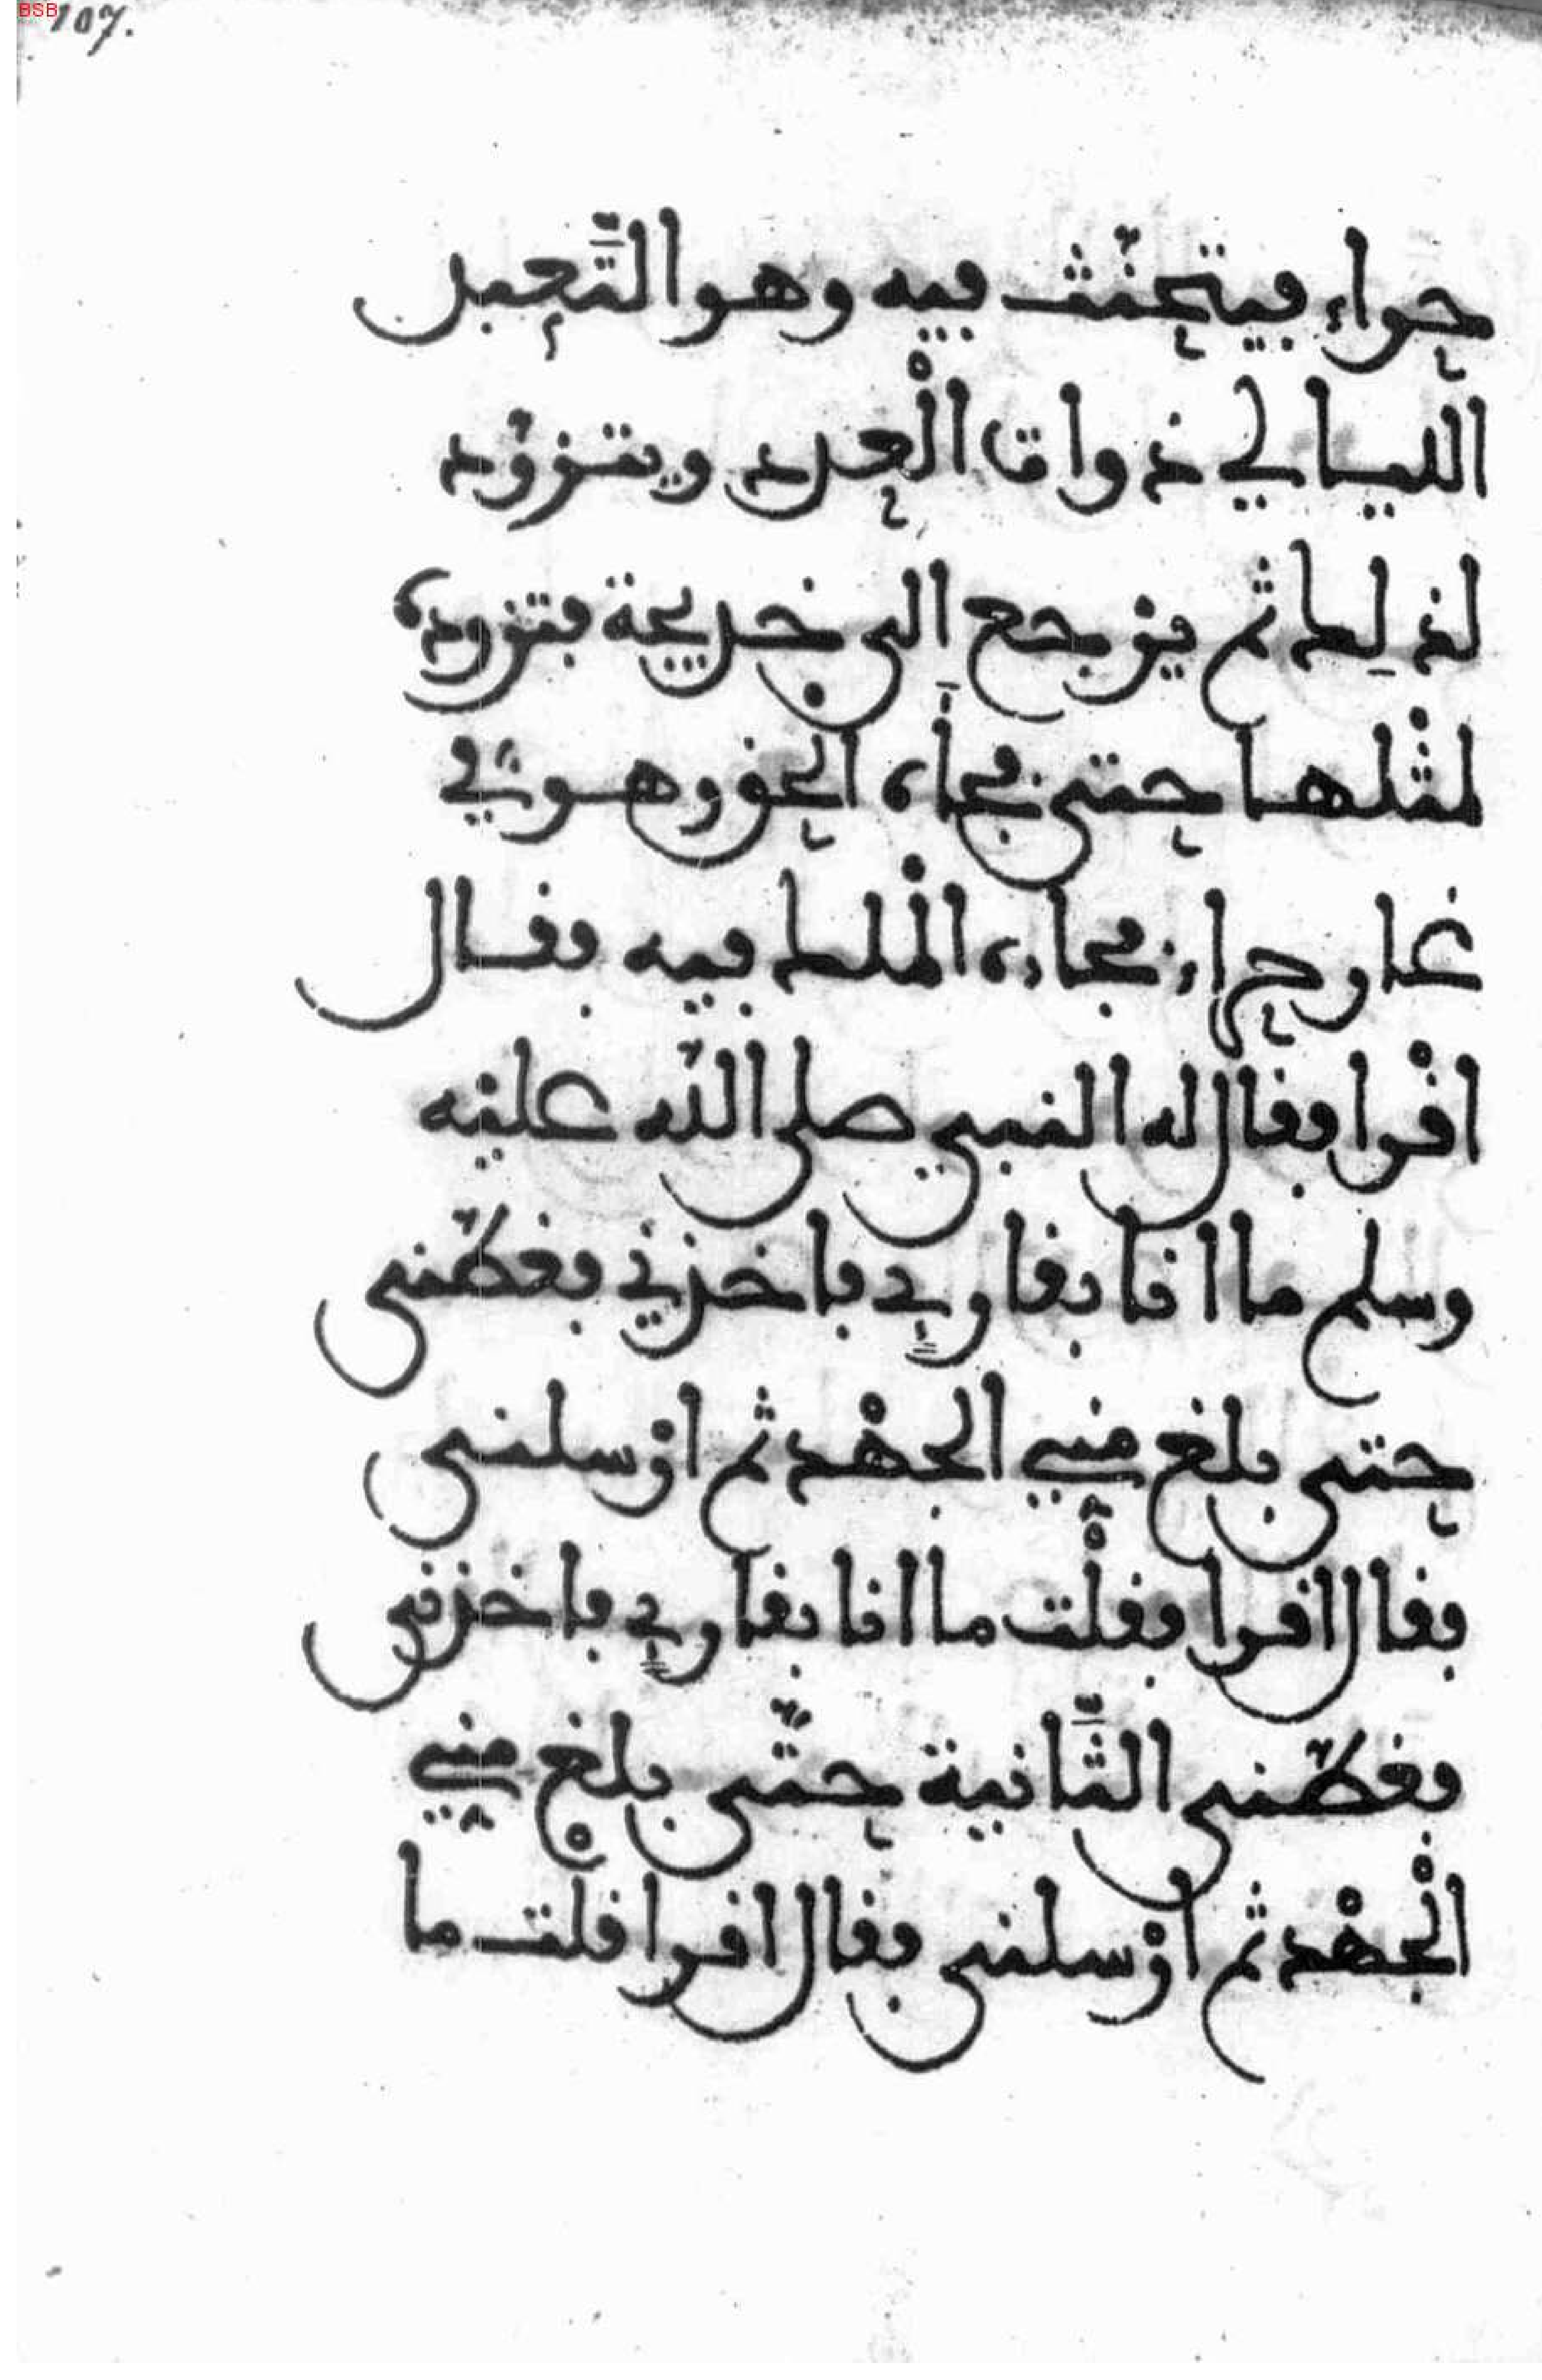 BSB 107.
حراء فيتحنّث فيه وهو التَّعبد
الليالي ذوات الْعدد ويتزوّد
لذلك ثم يرْجع الى خديجة فتزوده
لمثْلها حتى فجأه الحق وهو في
غار حراء فجاءه الْملك فيه فقال
اقْرا فقال له النبي صلى اللّه عليْه
وسلم ما انا بقارئ فاخذني فغطّني
حتى بلغ مني الجهْد ثم ارْسلني
فقال اقرا فقلْت ما انا بقارئ فاخذني
فغطّني الثَّانية حتّى بلغ مني
الْجهْد ثم ارْسلني فقال اقرا قلْت ما